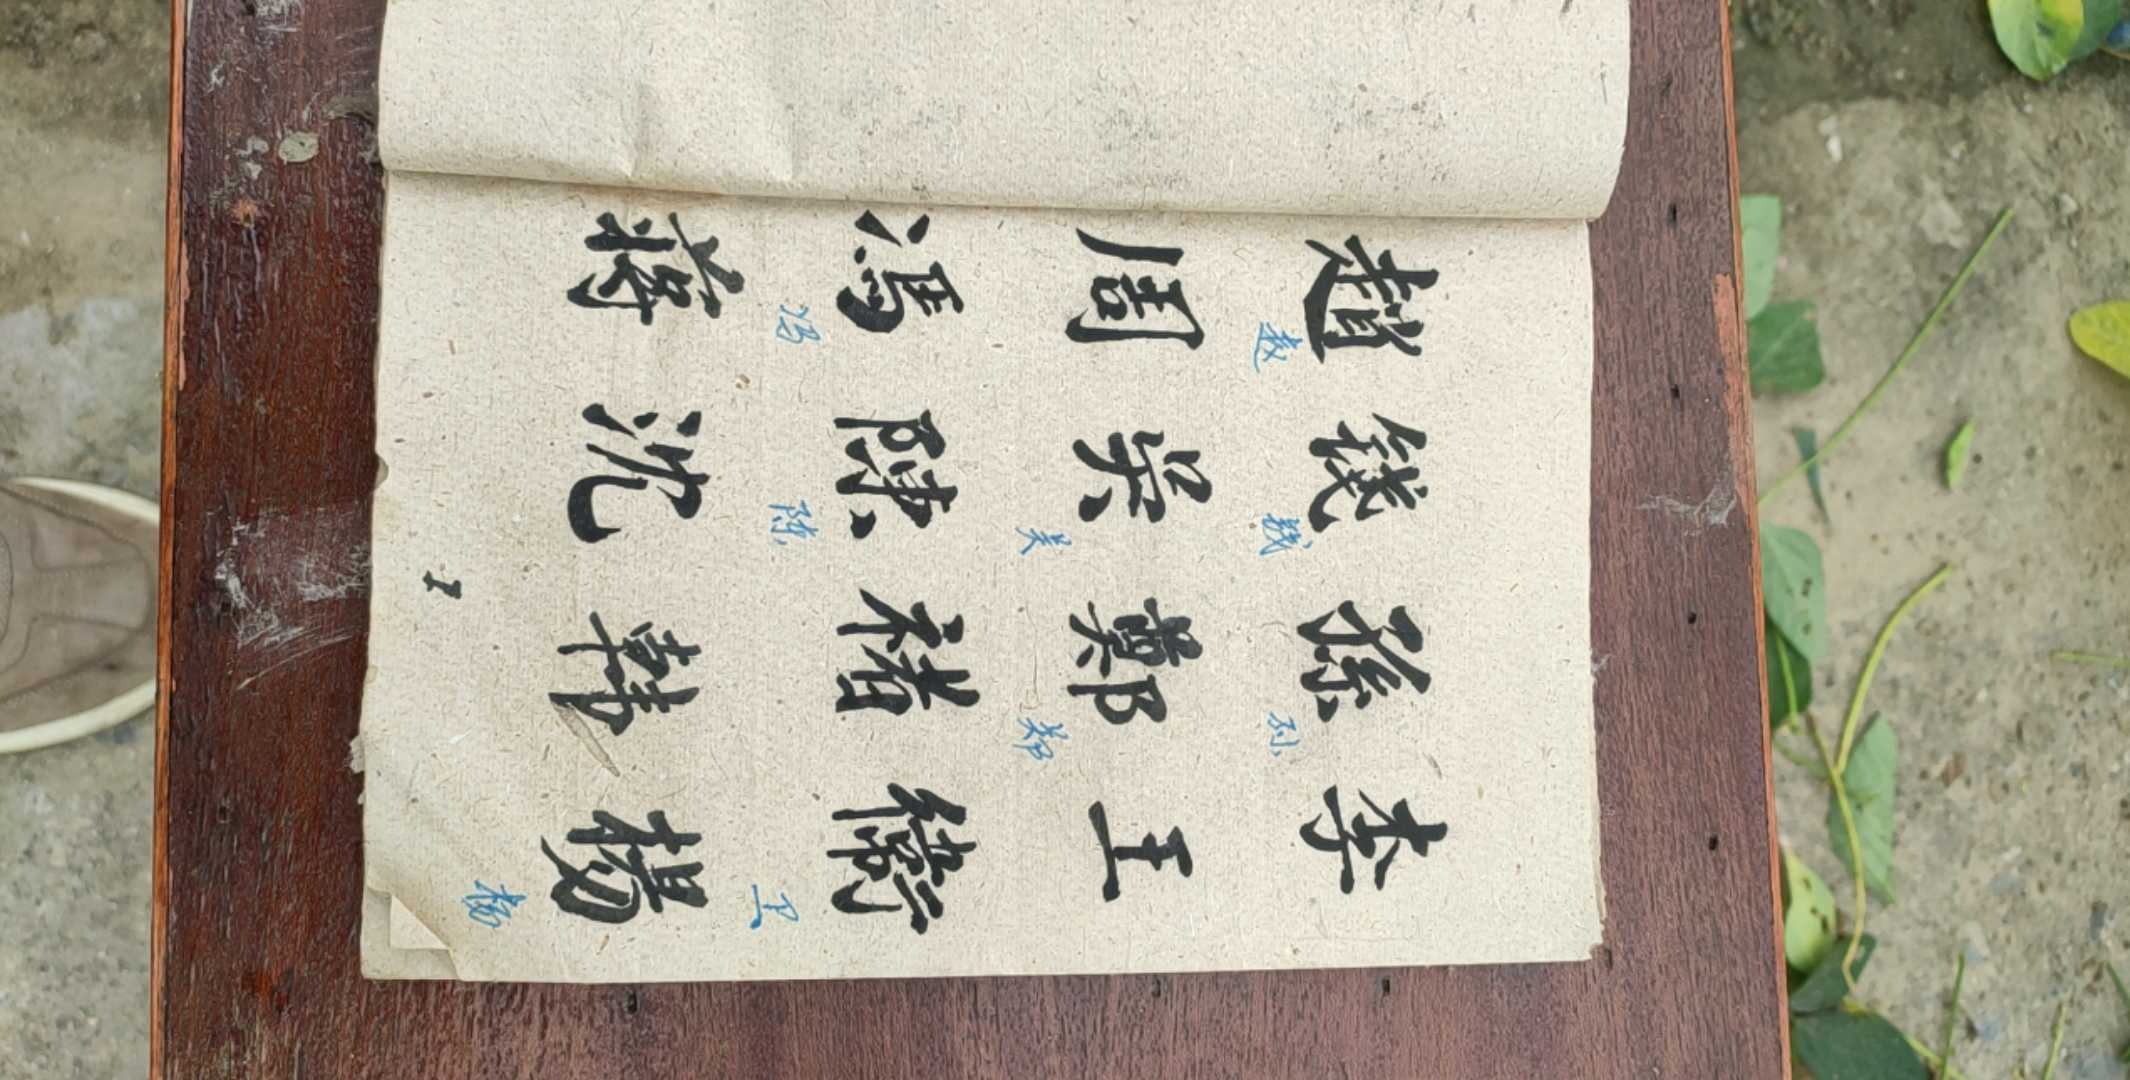 趙 錢 孫 李
赵 钱 孙
周 吳 鄭 王
吴 郑
馮 陳 褚 衛
冯 陈 卫
蔣 沈 韓 楊
杨
1